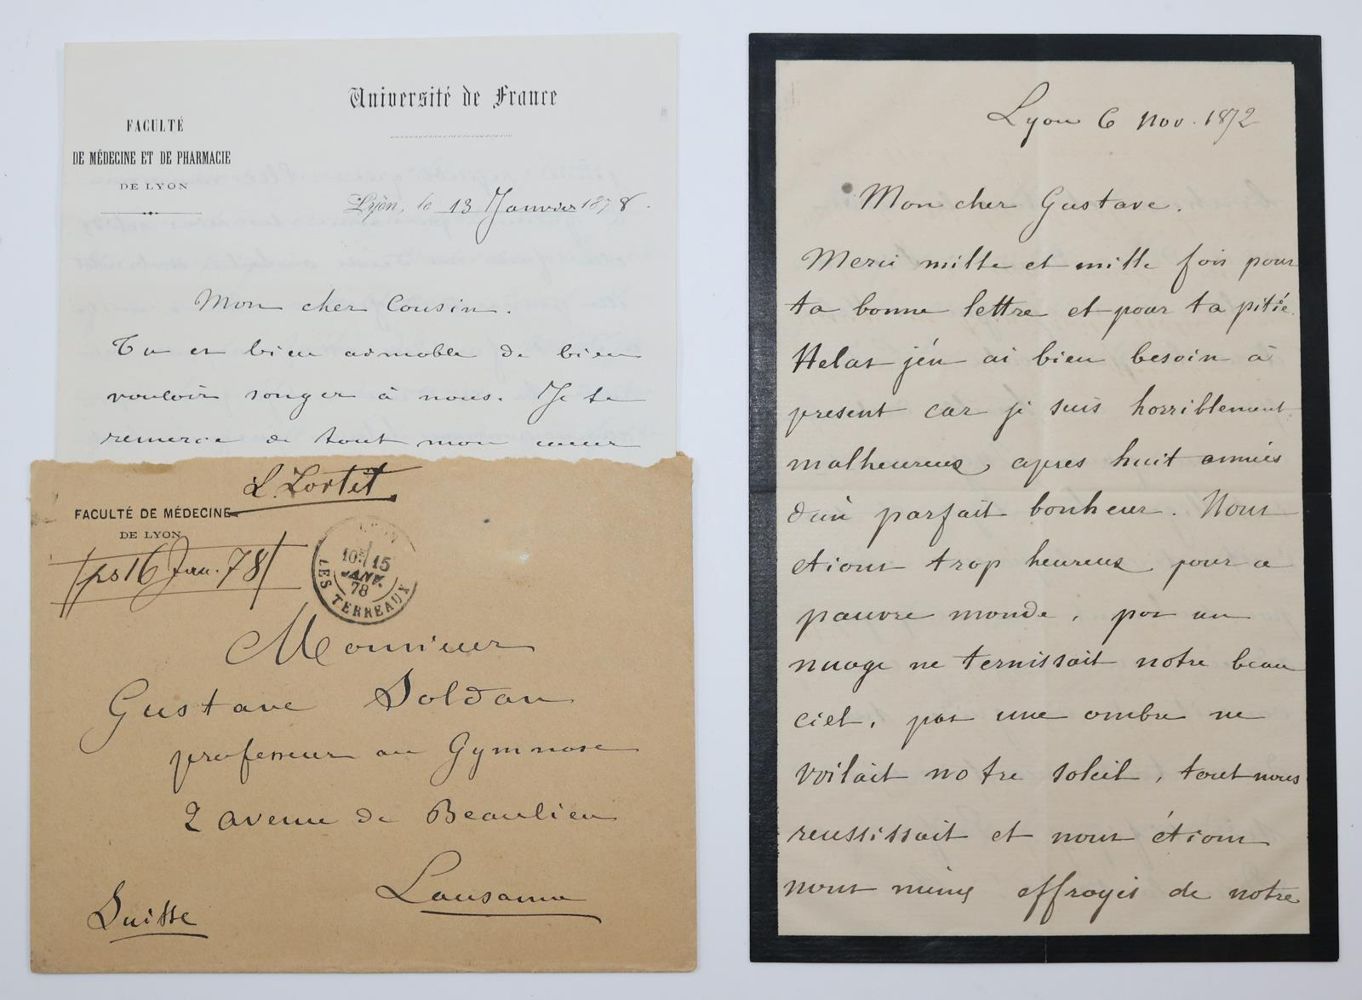 Université de France
FACULTÉ
DE MÉDECINE ET DE PHARMACIE
DE LYON
Lyon, le 13 Janvier 1878.
Mon cher Cousin.
Tu es bien aimable de bien
vouloir songer à nous. Je te
remercie de tout mon coeur
L. Lortet
FACULTÉ DE MÉDECINE
DE LYON
16 Janv. 78
LYON
10E 15
JANV.
78
LES TERREAUX
Monsieur
Gustave Soldan
professeur au Gymnase
2 avenue de Beaulieu
Lausanne
Suisse
Lyon 6 Nov. 1872
Mon cher Gustave.
Merci mille et mille fois pour
ta bonne lettre et pour ta pitié.
Helas j'en ai bien besoin à
present car je suis horriblement
malheureux, apres huit années
d'un parfait bonheur. Nous
etions trop heureux pour ce
pauvre monde, pas un
nuage ne ternissait notre beau
ciel, pas une ombre ne
voilait notre soleil, tout nous
reussissait et nous étions
nous meme effrayés de notre